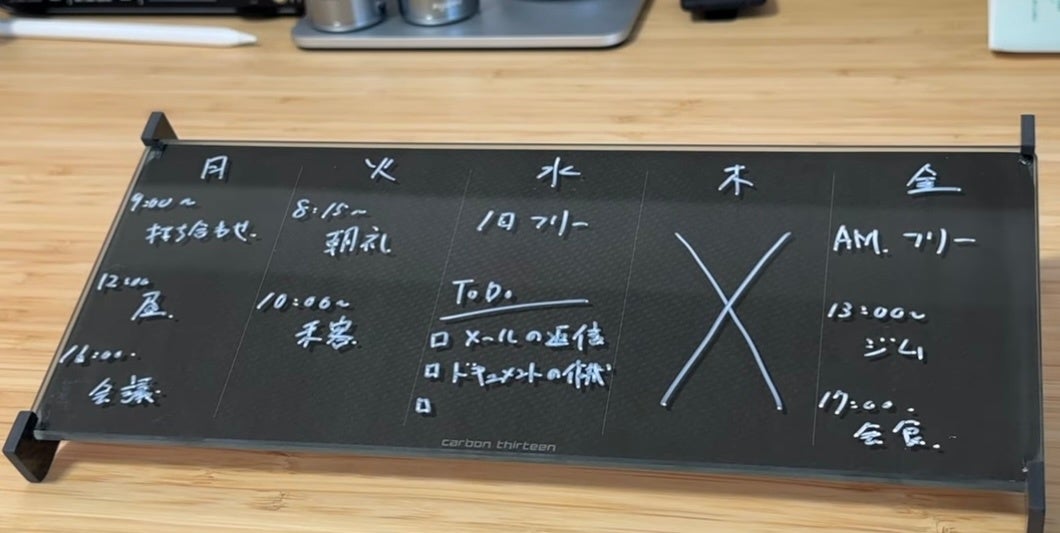 月
9:00~
打ち合わせ.
12:00
昼.
16:00.
会議.
火
8:15~
朝礼
10:00~
来客.
水
1日 フリー
ToDo
□ メールの返信
□ ドキュメントの作成
□
木
金
AM. フリー
13:00~
ジム
17:00.
会食.
carbon thirteen